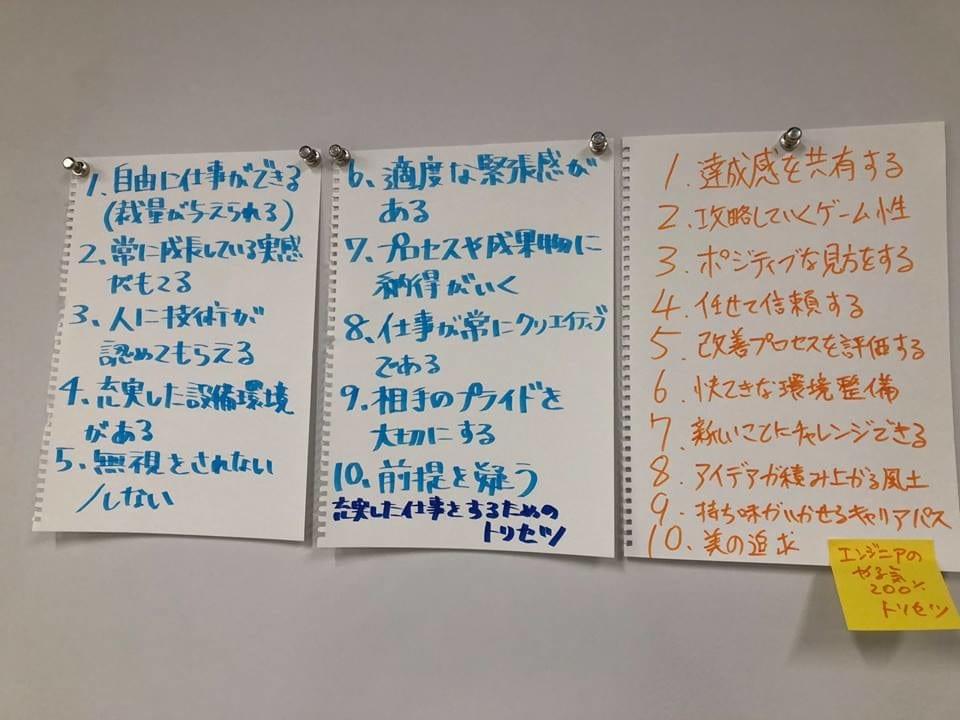 1、自由に仕事ができる
(裁量が与えられる)
2、常に成長している実感
がもてる
3、人に技術が
認めてもらえる
4、充実した設備環境
がある
5、無視をされない
/しない
6、適度な緊張感が
ある
7、プロセスや成果物に
納得がいく
8、仕事が常にクリエイティブ
である
9、相手のプライドを
大切にする
10、前提を疑う
充実した仕事をするための
トリセツ
1. 達成感を共有する
2. 攻略していくゲーム性
3. ポジティブな見方をする
4. 任せて信頼する
5. 改善プロセスを評価する
6. 快てきな環境整備
7. 新しいことにチャレンジできる
8. アイデアが積み上がる風土
9. 持ち味がいかせるキャリアパス
10. 美の追求
エンジニアの
やる気
200%
トリセツ